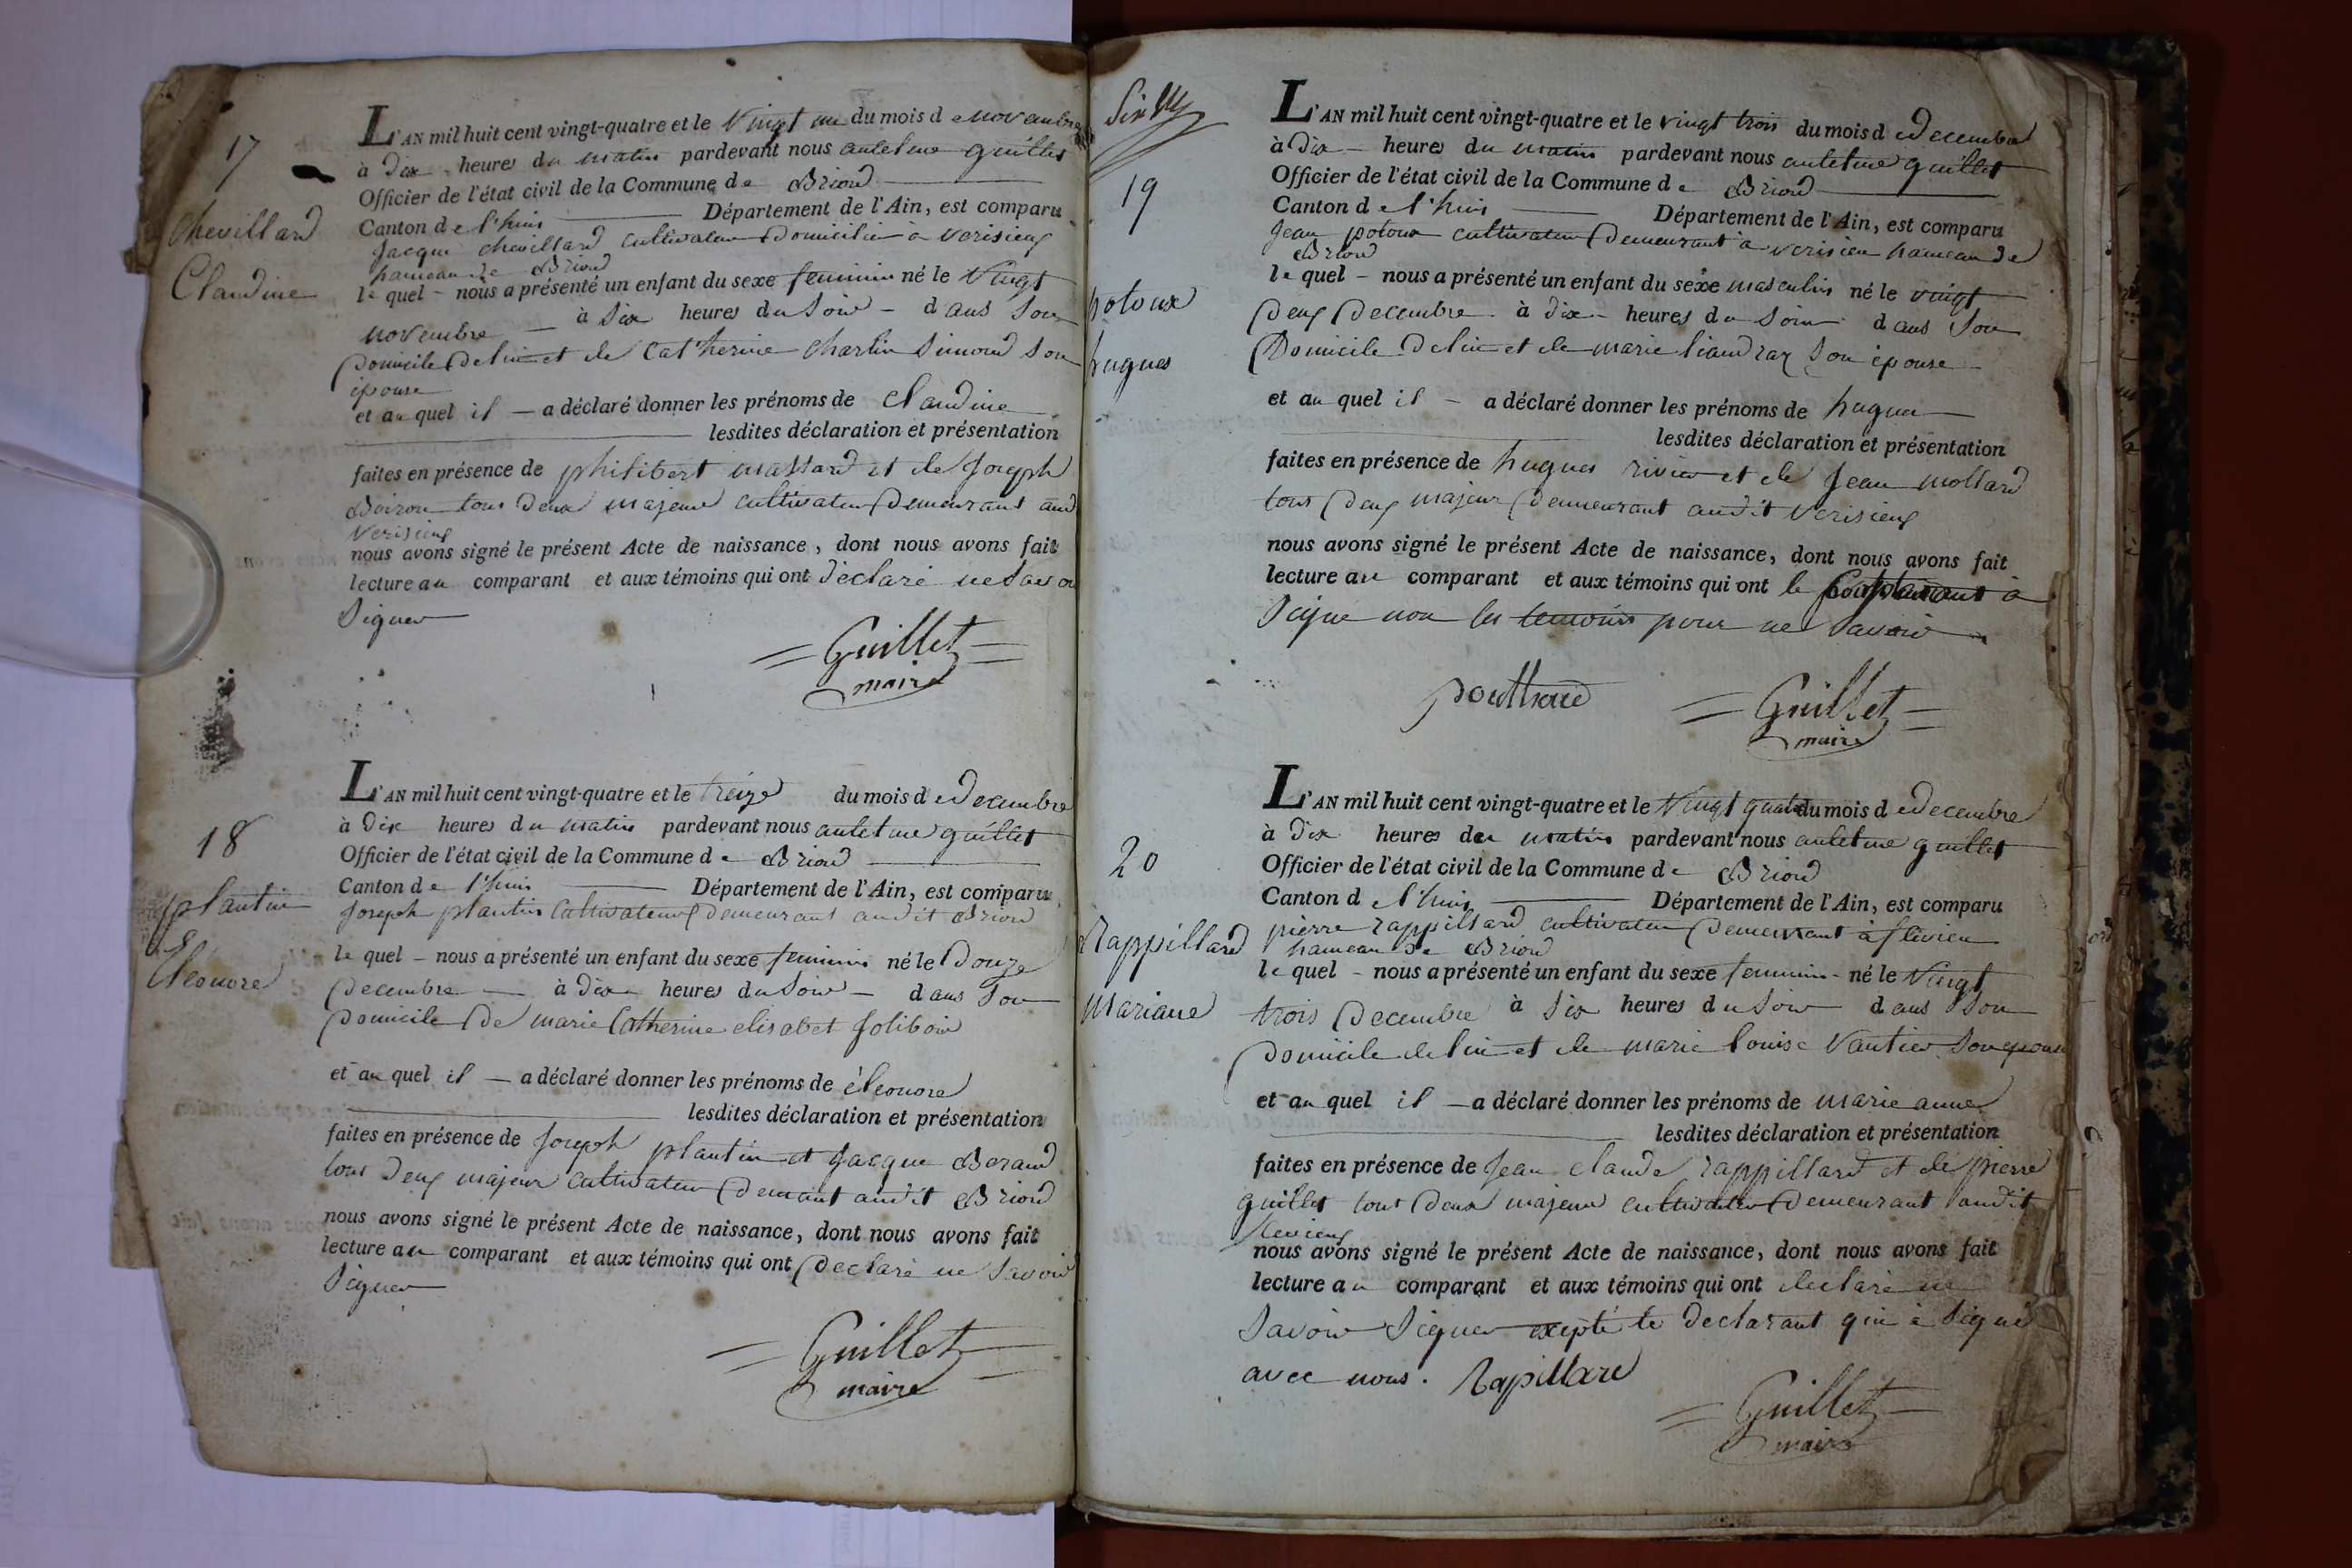 17
Chevillard
Claudine
L'AN mil huit cent vingt-quatre et le Vingt un du mois de novembre
à dix heures du matin pardevant nous antelme guillet
Officier de l'état civil de la Commune de Briord
Canton de l'huis Département de l'Ain, est comparu
Jacque chevillard cultivateur domicilié a verisieux
hameau de Briord
lequel nous a présenté un enfant du sexe feminin né le Vingt
novembre à six heures du soir dans son
domicile de lui et de Catherine charlin simond son
épouse
et auquel il a déclaré donner les prénoms de claudine
lesdites déclaration et présentation
faites en présence de philibert massard et de Joseph
Boiron tous deux majeur cultivateur demeurant aud
verisieux
nous avons signé le présent Acte de naissance, dont nous avons fait
lecture au comparant et aux témoins qui ont déclaré ne savoir
signer
Guillet
maire
18
plantin
Eleonore
L'AN mil huit cent vingt-quatre et le treize du mois de decembre
à dix heures du matin pardevant nous antelme guillet
Officier de l'état civil de la Commune de Briord
Canton de l'huis Département de l'Ain, est comparu
Joseph plantin cultivateur demeurant audit Briord
lequel nous a présenté un enfant du sexe feminin né le Douze
decembre à dix heures du soir dans son
domicile de marie Catherine elisabet Joliboir
et auquel il a déclaré donner les prénoms de éléonore
lesdites déclaration et présentation
faites en présence de Joseph plantin et Jacque Beraud
tous deux majeur cultivateur demant audit Briord
nous avons signé le présent Acte de naissance, dont nous avons fait
lecture au comparant et aux témoins qui ont declaré ne savoir
signer
Guillet
maire
19
potoux
hugues
L'AN mil huit cent vingt-quatre et le vingt trois du mois de decembre
à dix heures du matin pardevant nous antelme guillet
Officier de l'état civil de la Commune de Briord
Canton de l'huis Département de l'Ain, est comparu
Jean potoux cultivateur demeurant à verisieu hameau de
Briord
lequel nous a présenté un enfant du sexe masculin né le vingt
deux decembre à dix heures du soir dans son
domicile de lui et de marie liaudrax son épouse
et auquel il a déclaré donner les prénoms de hugues
lesdites déclaration et présentation
faites en présence de hugues rivier et de Jean mollard
tous deux majeur demeurant audit verisieux
nous avons signé le présent Acte de naissance, dont nous avons fait
lecture au comparant et aux témoins qui ont le Comparant à
signe non les temoins pour ne savoir
Guillet
maire
20
Rappillard
Mariane
L'AN mil huit cent vingt-quatre et le Vingt quatre du mois de decembre
à dix heures du matin pardevant nous antelme guillet
Officier de l'état civil de la Commune de Briord
Canton de l'huis Département de l'Ain, est comparu
pierre rappillard cultivateur demeurant à flévieu
hameau de Briord
lequel nous a présenté un enfant du sexe feminin né le Vingt
trois decembre à six heures du soir dans son
domicile de lui et de marie louise Vantier son epouse
et auquel il a déclaré donner les prénoms de marie anne
lesdites déclaration et présentation
faites en présence de Jean claude rappillard et de pierre
guillet tous deux majeur cultivateur demeurant audit
flevieux
nous avons signé le présent Acte de naissance, dont nous avons fait
lecture au comparant et aux témoins qui ont declaré ne
savoir signer excepté le declarant qui à signé
avec nous. Rapillard
Guillet
maire